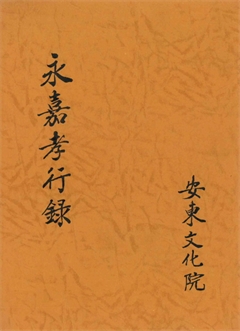 永嘉孝行録
安東文化院